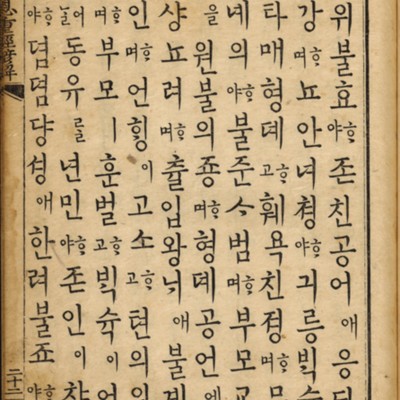 위불효ᄒᆞ야존친공어애응
강ᄒᆞ며뇨안녀켱ᄒᆞ야긔릉빅
타매형뎨ᄒᆞ고훼욕친졍ᄒᆞ며
녜의ᄒᆞ야불준ᄉᆞ범ᄒᆞ며부모교
을원불의죵ᄒᆞ며형뎨공언에
샹뇨려ᄒᆞ며츌입왕ᄂᆡ애불계
인ᄒᆞ며언ᄒᆡᆼ이고소ᄒᆞ고텬의
ᄒᆞ며부모ㅣ훈벌ᄒᆞ고빅슉이언
동유를년민ᄒᆞ야존인이챠
ᄒᆞ야뎜뎜댱셩애한려불죠ᄒᆞ야
重經諺解
二十二